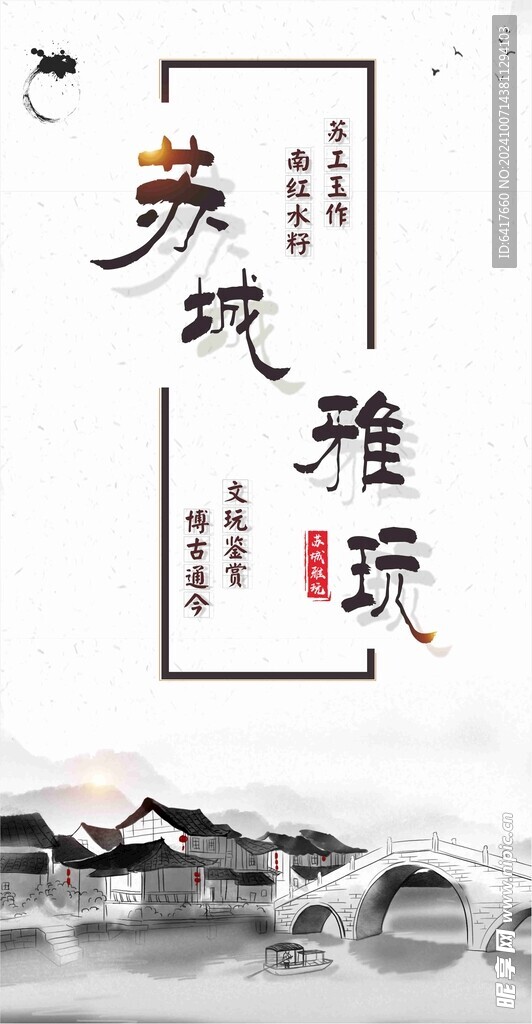 苏城雅玩
苏工玉作
南红水籽
文玩鉴赏
博古通今
苏城雅玩
ID:6417660 NO:20241007143811294103
昵享网 www.nipic.cn